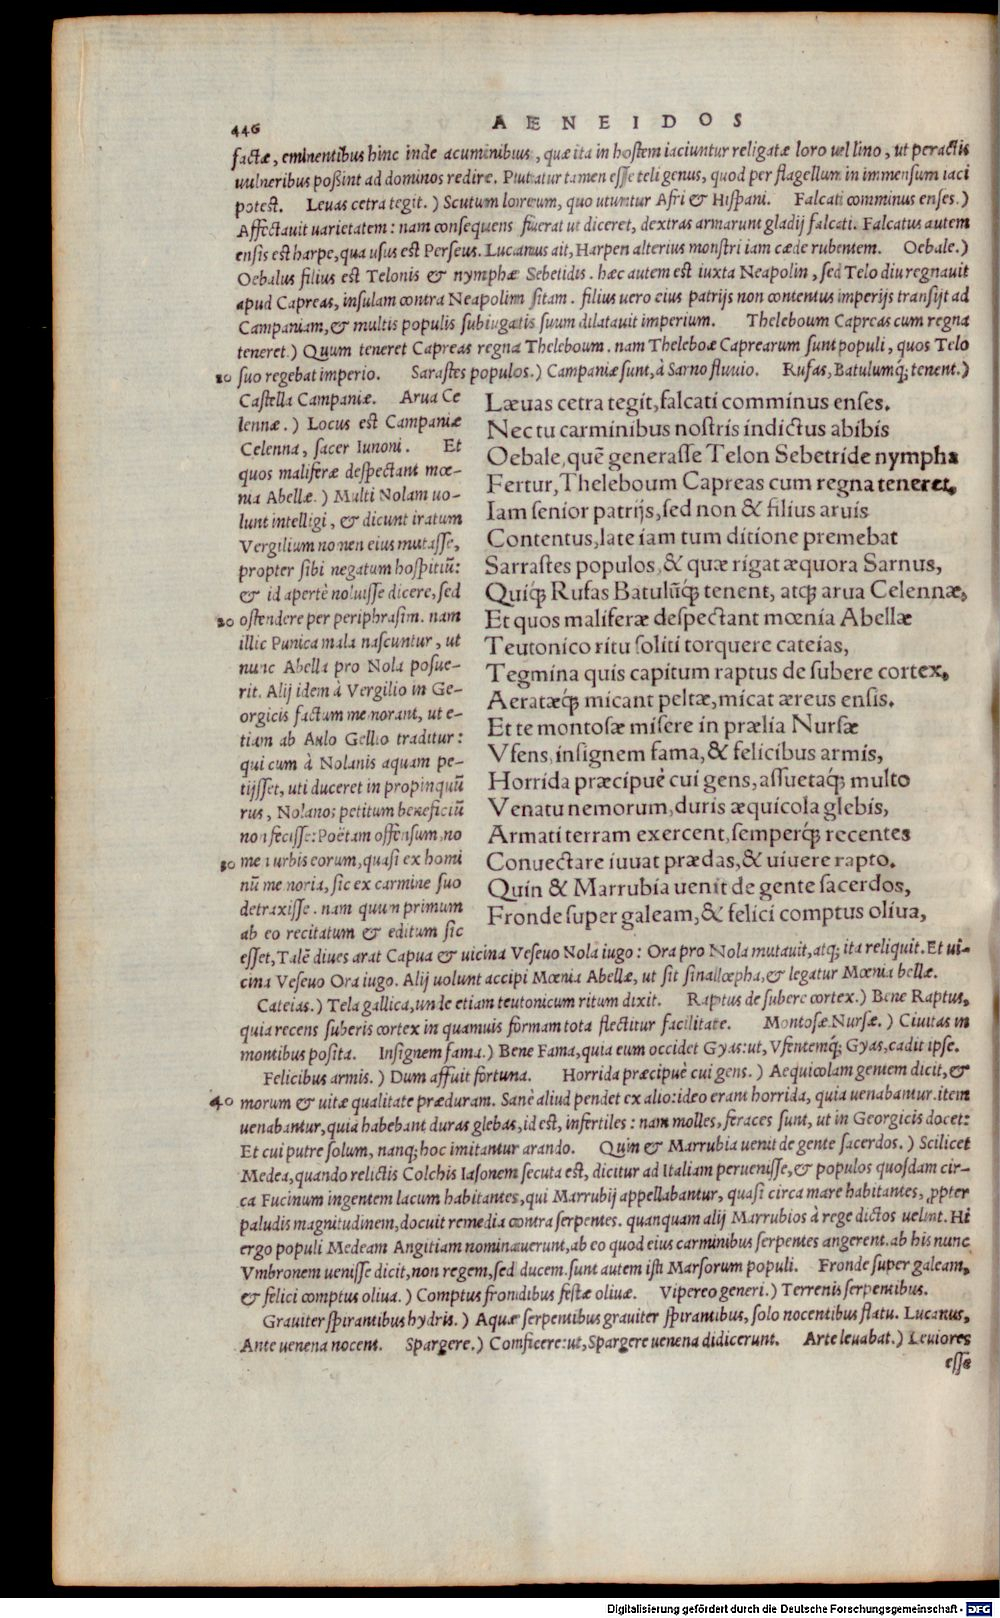 446
AENEIDOS
factæ, eminentibus hinc inde acuminibus, quæ ita in hostem iaciuntur religatæ loro uel lino, ut peractis
uulneribus poßint ad dominos redire. Putatur tamen esse teli genus, quod per flagellum in immensum iaci
potest. Leuas cetra tegit.) Scutum loreum, quo utuntur Afri & Hispani. Falcati comminus enses.)
Affectauit uarietatem: nam consequens fuerat ut diceret, dextras armarunt gladij falcati. Falcatus autem
ensis est harpe, qua usus est Perseus. Lucanus ait, Harpen alterius monstri iam cæde rubentem. Oebale.)
Oebalus filius est Telonis & nymphæ Sebetidis. hæc autem est iuxta Neapolin, sed Telo diu regnauit
apud Capreas, insulam contra Neapolim sitam. filius uero eius patrijs non contentus imperijs transijt ad
Campaniam, & multis populis subiugatis suum dilatauit imperium. Theleboum Capreas cum regna
teneret.) Quum teneret Capreas regna Theleboum. nam Theleboæ Caprearum sunt populi, quos Telo
10 suo regebat imperio. Sarastes populos.) Campaniæ sunt, à Sarno fluuio. Rufas, Batulumq́; tenent.)
Castella Campaniæ. Arua Ce
lennæ.) Locus est Campaniæ
Celenna, sacer Iunoni. Et
quos maliferæ despectant mœ-
nia Abellæ.) Multi Nolam uo-
lunt intelligi, & dicunt iratum
Vergilium nomen eius mutasse,
propter sibi negatum hospitiũ:
& id apertè noluisse dicere, sed
20 ostendere per periphrasim. nam
illic Punica mala nascuntur, ut
nunc Abella pro Nola posue-
rit. Alij idem à Vergilio in Ge-
orgicis factum memorant, ut e-
tiam ab Aulo Gellio traditur:
qui cum à Nolanis aquam pe-
tijsset, uti duceret in propinquũ
rus, Nolanos petitum beneficiũ
non fecisse: Poëtam offensum, no
30 men urbis eorum, quasi ex homi
nũ memoria, sic ex carmine suo
detraxisse. nam quum primum
ab eo recitatum & editum sic
Læuas cetra tegit, falcati comminus enses.
Nec tu carminibus nostris indictus abibis
Oebale, quẽ generasse Telon Sebetride nympha
Fertur, Theleboum Capreas cum regna teneret,
Iam senior patrijs, sed non & filius aruis
Contentus, late iam tum ditione premebat
Sarrastes populos, & quæ rigat æquora Sarnus,
Quiq́; Rufas Batulũq́; tenent, atq́; arua Celennæ,
Et quos maliferæ despectant mœnia Abellæ
Teutonico ritu soliti torquere cateias,
Tegmina quis capitum raptus de subere cortex,
Aeratæq́; micant peltæ, micat æreus ensis.
Et te montosæ misere in prælia Nursæ
Vfens, insignem fama, & felicibus armis,
Horrida præcipuè cui gens, assuetaq́; multo
Venatu nemorum, duris æquicola glebis,
Armati terram exercent, semperq́; recentes
Conuectare iuuat prædas, & uiuere rapto.
Quin & Marrubia uenit de gente sacerdos,
Fronde super galeam, & felici comptus oliua,
esset, Talẽ diues arat Capua & uicina Veseuo Nola iugo: Ora pro Nola mutauit, atq; ita reliquit. Et ui-
cina Veseuo Ora iugo. Alij uolunt accipi Mœnia Abellæ, ut sit sinalœpha, & legatur Mœnia bellæ.
Cateias.) Tela gallica, unde etiam teutonicum ritum dixit. Raptus de subere cortex.) Bene Raptus,
quia recens suberis cortex in quamuis formam tota flectitur facilitate. Montosæ Nursæ.) Ciuitas in
montibus posita. Insignem fama.) Bene Fama, quia eum occidet Gyas: ut, Vfentemq́; Gyas, cadit ipse.
Felicibus armis.) Dum affuit fortuna. Horrida præcipuè cui gens.) Aequicolam gentem dicit, &
40 morum & uitæ qualitate præduram. Sanè aliud pendet ex alio: ideo erant horrida, quia uenabantur. item
uenabantur, quia habebant duras glebas, id est, infertiles: nam molles, feraces sunt, ut in Georgicis docet:
Et cui putre solum, nanq; hoc imitantur arando. Quin & Marrubia uenit de gente sacerdos.) Scilicet
Medea, quando relictis Colchis Iasonem secuta est, dicitur ad Italiam peruenisse, & populos quosdam cir-
ca Fucinum ingentem lacum habitantes, qui Marrubij appellabantur, quasi circa mare habitantes, ꝓpter
paludis magnitudinem, docuit remedia contra serpentes. quanquam alij Marrubios à rege dictos uelint. Hi
ergo populi Medeam Angitiam nominauerunt, ab eo quod eius carminibus serpentes angerent. ab his nunc
Vmbronem uenisse dicit, non regem, sed ducem. sunt autem isti Marsorum populi. Fronde super galeam,
& felici comptus oliua.) Comptus frondibus festæ oliuæ. Vipereo generi.) Terrenis serpentibus.
Grauiter spirantibus hydris.) Aquæ serpentibus grauiter spirantibus, solo nocentibus flatu. Lucanus,
Ante uenena nocens. Spargere.) Comficere: ut, Spargere uenena didicerunt. Arte leuabat.) Leuiores
esse
Digitalisierung gefördert durch die Deutsche Forschungsgemeinschaft - DFG